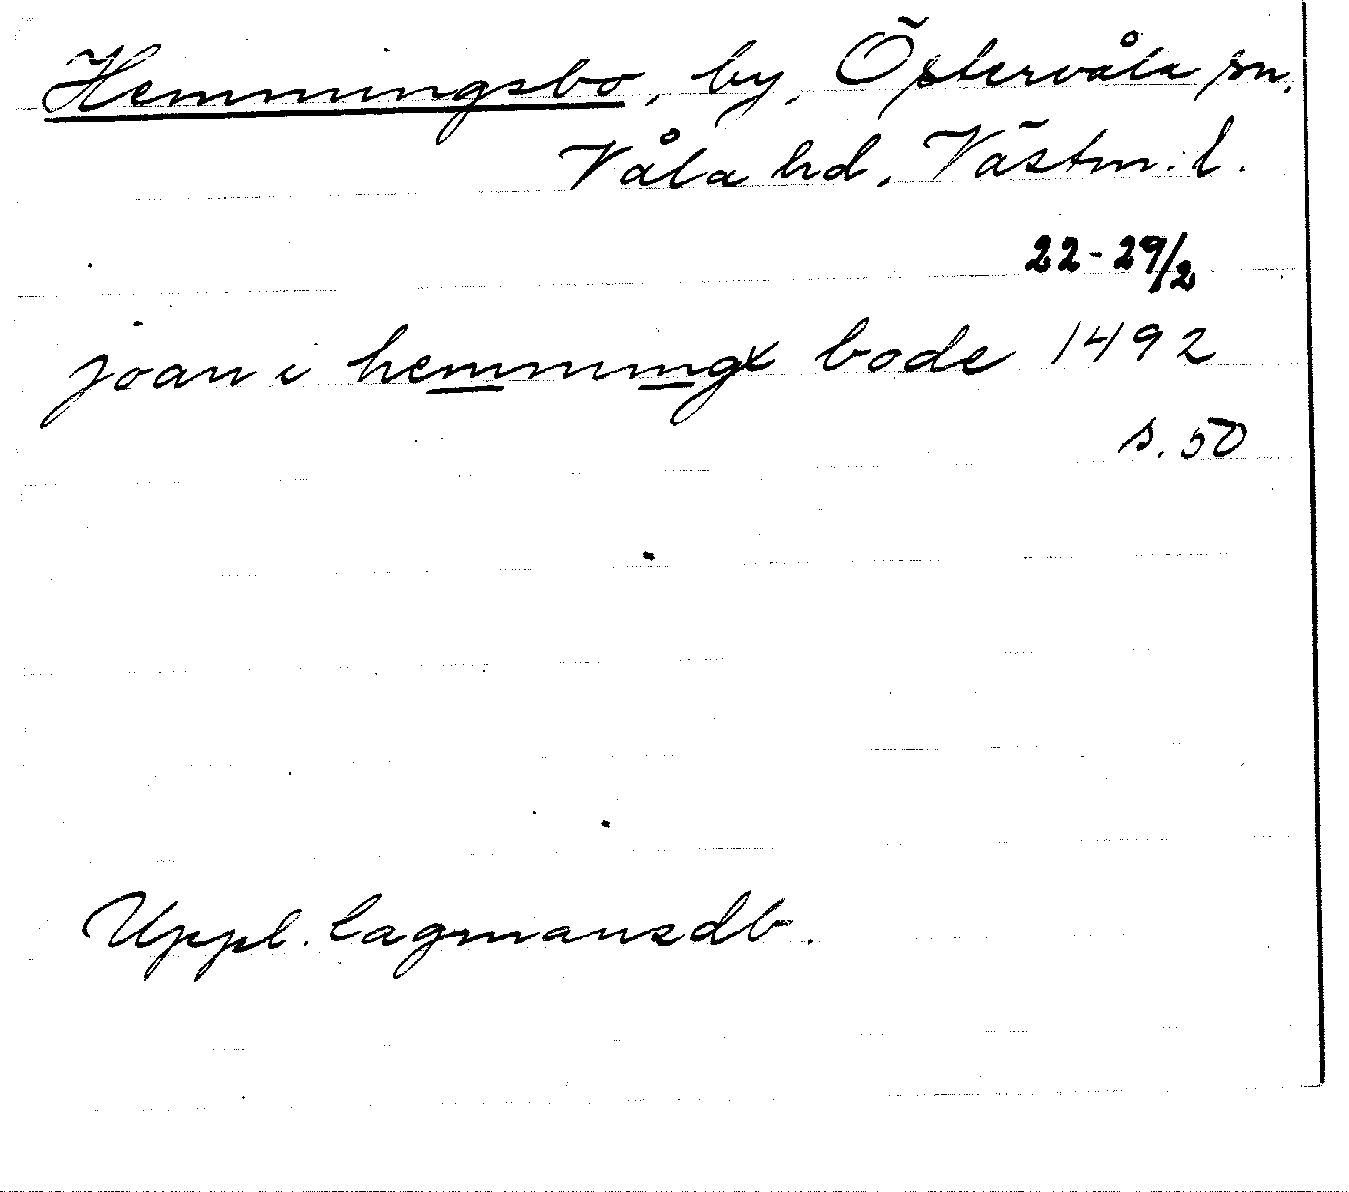 Hemmingsbo, by, Östervåla sn.
Våla hd, Västm. l.
22-29/2
joan i hemmingx bode 1492
s. 50
Uppl. lagmansdb.